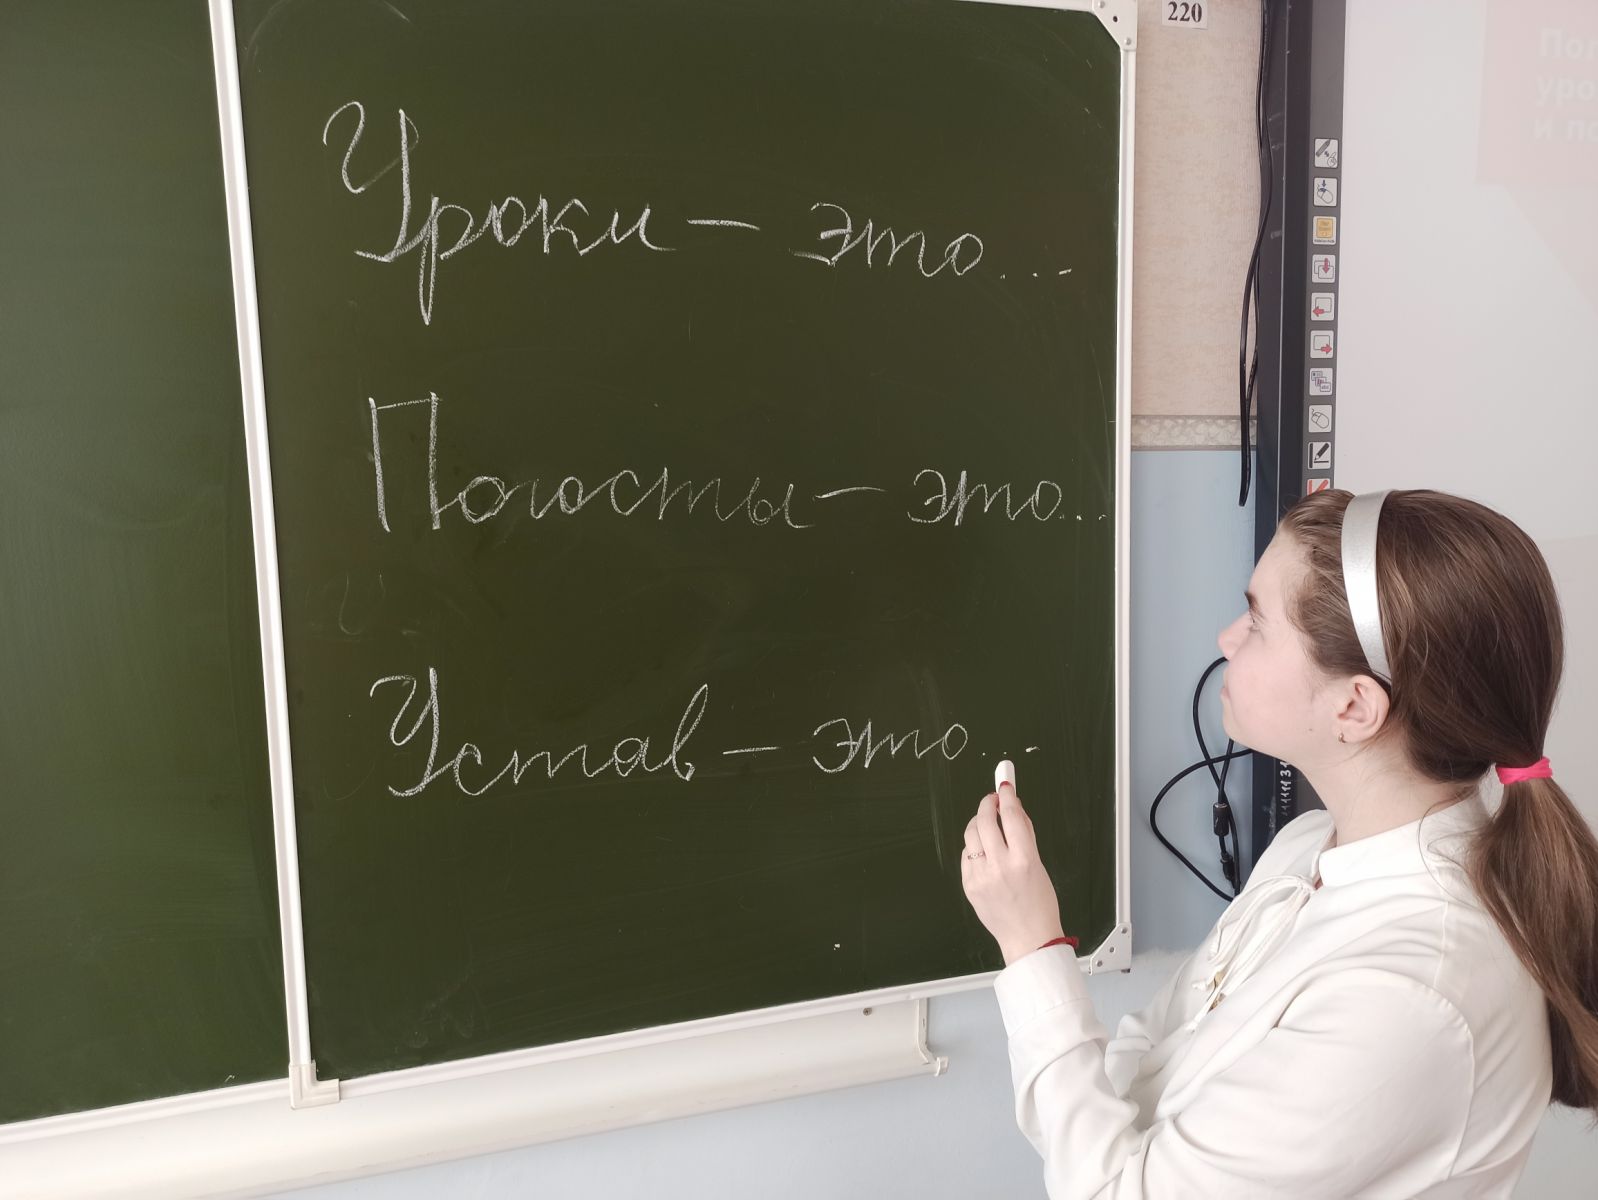 220
Пол
уро
и по
Уроки – это...
Погосты – это...
Устав – это...